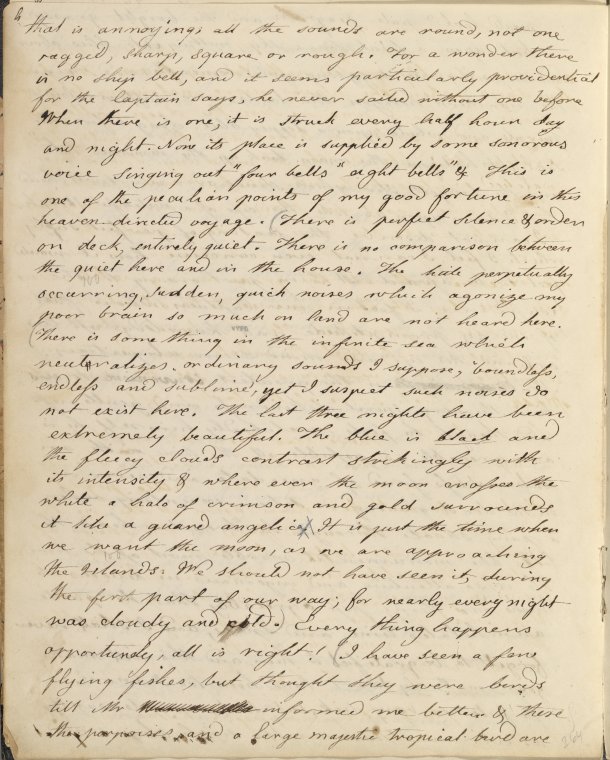 that is annoying; all the sounds are round, not one
ragged, sharp, square or rough. For a wonder there
is no ship bell, and it seems particularly providential
for the Captain says, he never sailed without one before
When there is one, it is struck every half hour day
and night. Now its place is supplied by some sonorous
voice singing out "four bells" "aght bells" & This is
one of the peculiar points of my good fortune in this
heaven-directed voyage. (There is perfect silence & order
on deck, entirely quiet. There is no comparison between
the quiet here and in the house. The little perpetually
occurring, sudden, quick noises which agonize my
poor brain so much on land are not heard here.
(There is something in the infinite sea which
neutralizes ordinary sounds I suppose, boundless,
endless and sublime; yet I suspect such noises do
not exist here. The last three nights have been
extremely beautiful. The blue is black and
the fleecy clouds contrast strikingly with
its intensity & where ever the moon crosses the
white a halo of crimson and gold surrounds
it like a guard angelic. It is just the time when
we want the moon, as we are approaching
the Islands. We should not have seen it, during
the first part of our way; for nearly every night
was cloudy and cold.) Every thing happens
opportunely, all is right! (I have seen a few
flying fishes, but thought they were birds
till Mr informed me better & these
the porpoises and a large majestic tropical bird are